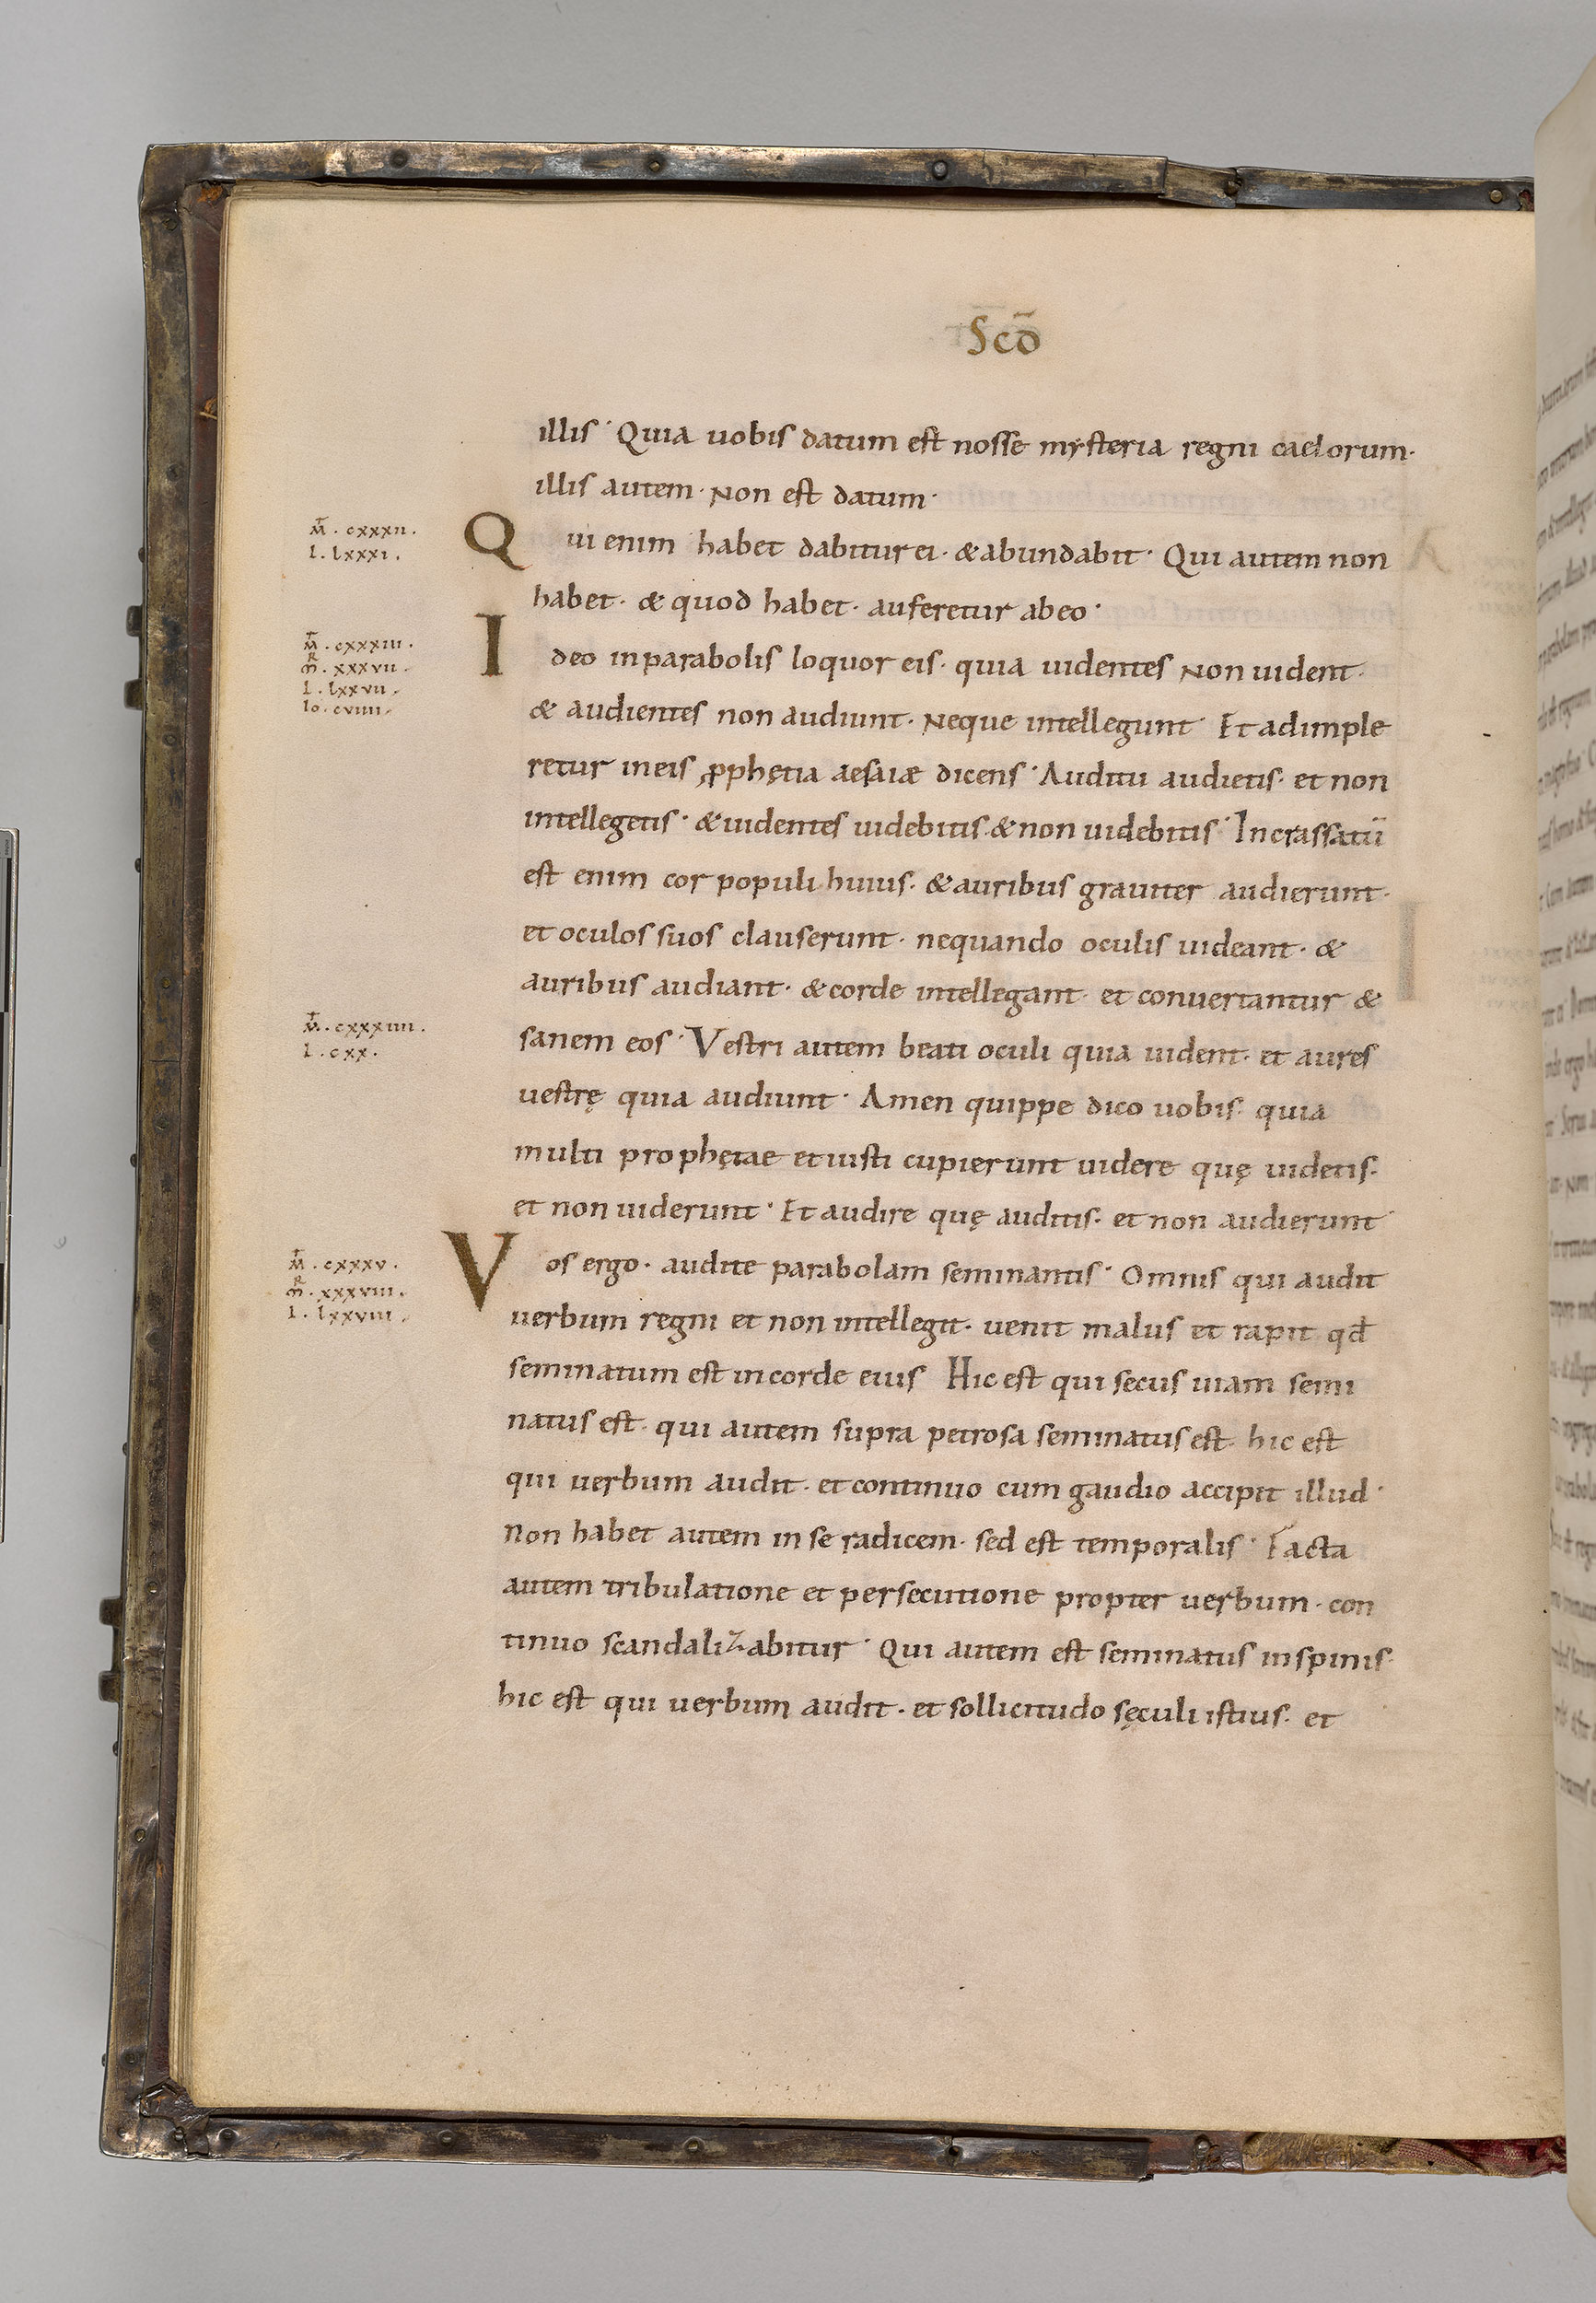 Scd̄
illis· Quia uobis datum est nosse mysteria regni caelorum·
illis autem· Non est datum·
M̄ . cxxxii .
l . lxxxi .
Qui enim habet dabitur ei· & abundabit· Qui autem non
habet· & quod habet· auferetur abeo·
M̄ . cxxxiii .
m̄R . xxxvii .
l . lxxvii .
Io . cviiii .
Ideo inparabolis loquor eis· quia uidentes Non uident·
& audientes non audiunt· Neque intellegunt· Et adimple
retur ineis ꝓphętia aesaiæ dicens· Auditu audietis· et non
intellegetis· & uidentes uidebitis· & non uidebitis· Incrassatū
est enim cor populi huius· & auribus grauiter audierunt·
et oculos suos clauserunt· nequando oculis uideant· &
auribus audiant· & corde intellegant· et conuertantur &
M̄ . cxxxiiii .
l . cxx .
sanem eos· Vestri autem beati oculi quia uident· et aures
uestrę quia audiunt· Amen quippe dico uobis· quia
multi prophętae et iusti cupierunt uidere quę uidetis·
et non uiderunt· Et audire quę auditis· et non audierunt·
M̄ . cxxxv .
m̄R . xxxviii .
l . lxxviii .
Vos ergo· audite parabolam seminantis· Omnis qui audit
uerbum regni et non intellegit· uenit malus et rapit qđ
seminatum est incorde eius Hic est qui secus uiam semi
natus est· qui autem supra petrosa seminatus est· hic est
qui uerbum audit· et continuo cum gaudio accipit illud·
non habet autem in se radicem· sed est temporalis· Facta
autem tribulatione et persecutione propter uerbum· con
tinuo scandalizabitur· Qui autem est seminatus inspinis·
hic est qui uerbum audit· et sollicitudo sęculi istius· et